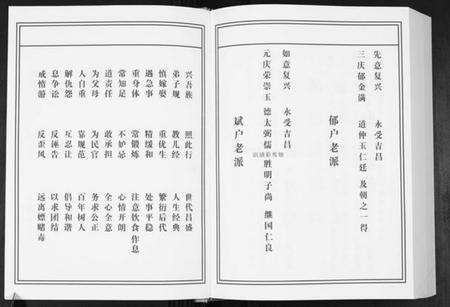 先意复兴　永受吉昌
三庆郁金满　道仲玉仁廷　及朝之一得
郁户老派
如意复兴　永受吉昌
元庆荣崇玉　德太弼儒胜明子尚　继国仁良
斌户老派
兴吾族　照此行　世代昌盛
弟子规　教儿经　人生经典
慎嫁娶　重优生　繁衍后代
遇急事　精缓和　处事平稳
重身体　常锻炼　注意饮食作息
常知足　不妒忌　心情开朗
道责任　敢承担　全心全意
为父母　为民官　务求公正
人自重　靠规范　百年树人
解仇怨　互忍让　倡导和谐
息争讼　反诬告　以求团结
戒惰游　反歪风　远离嫖赌毒